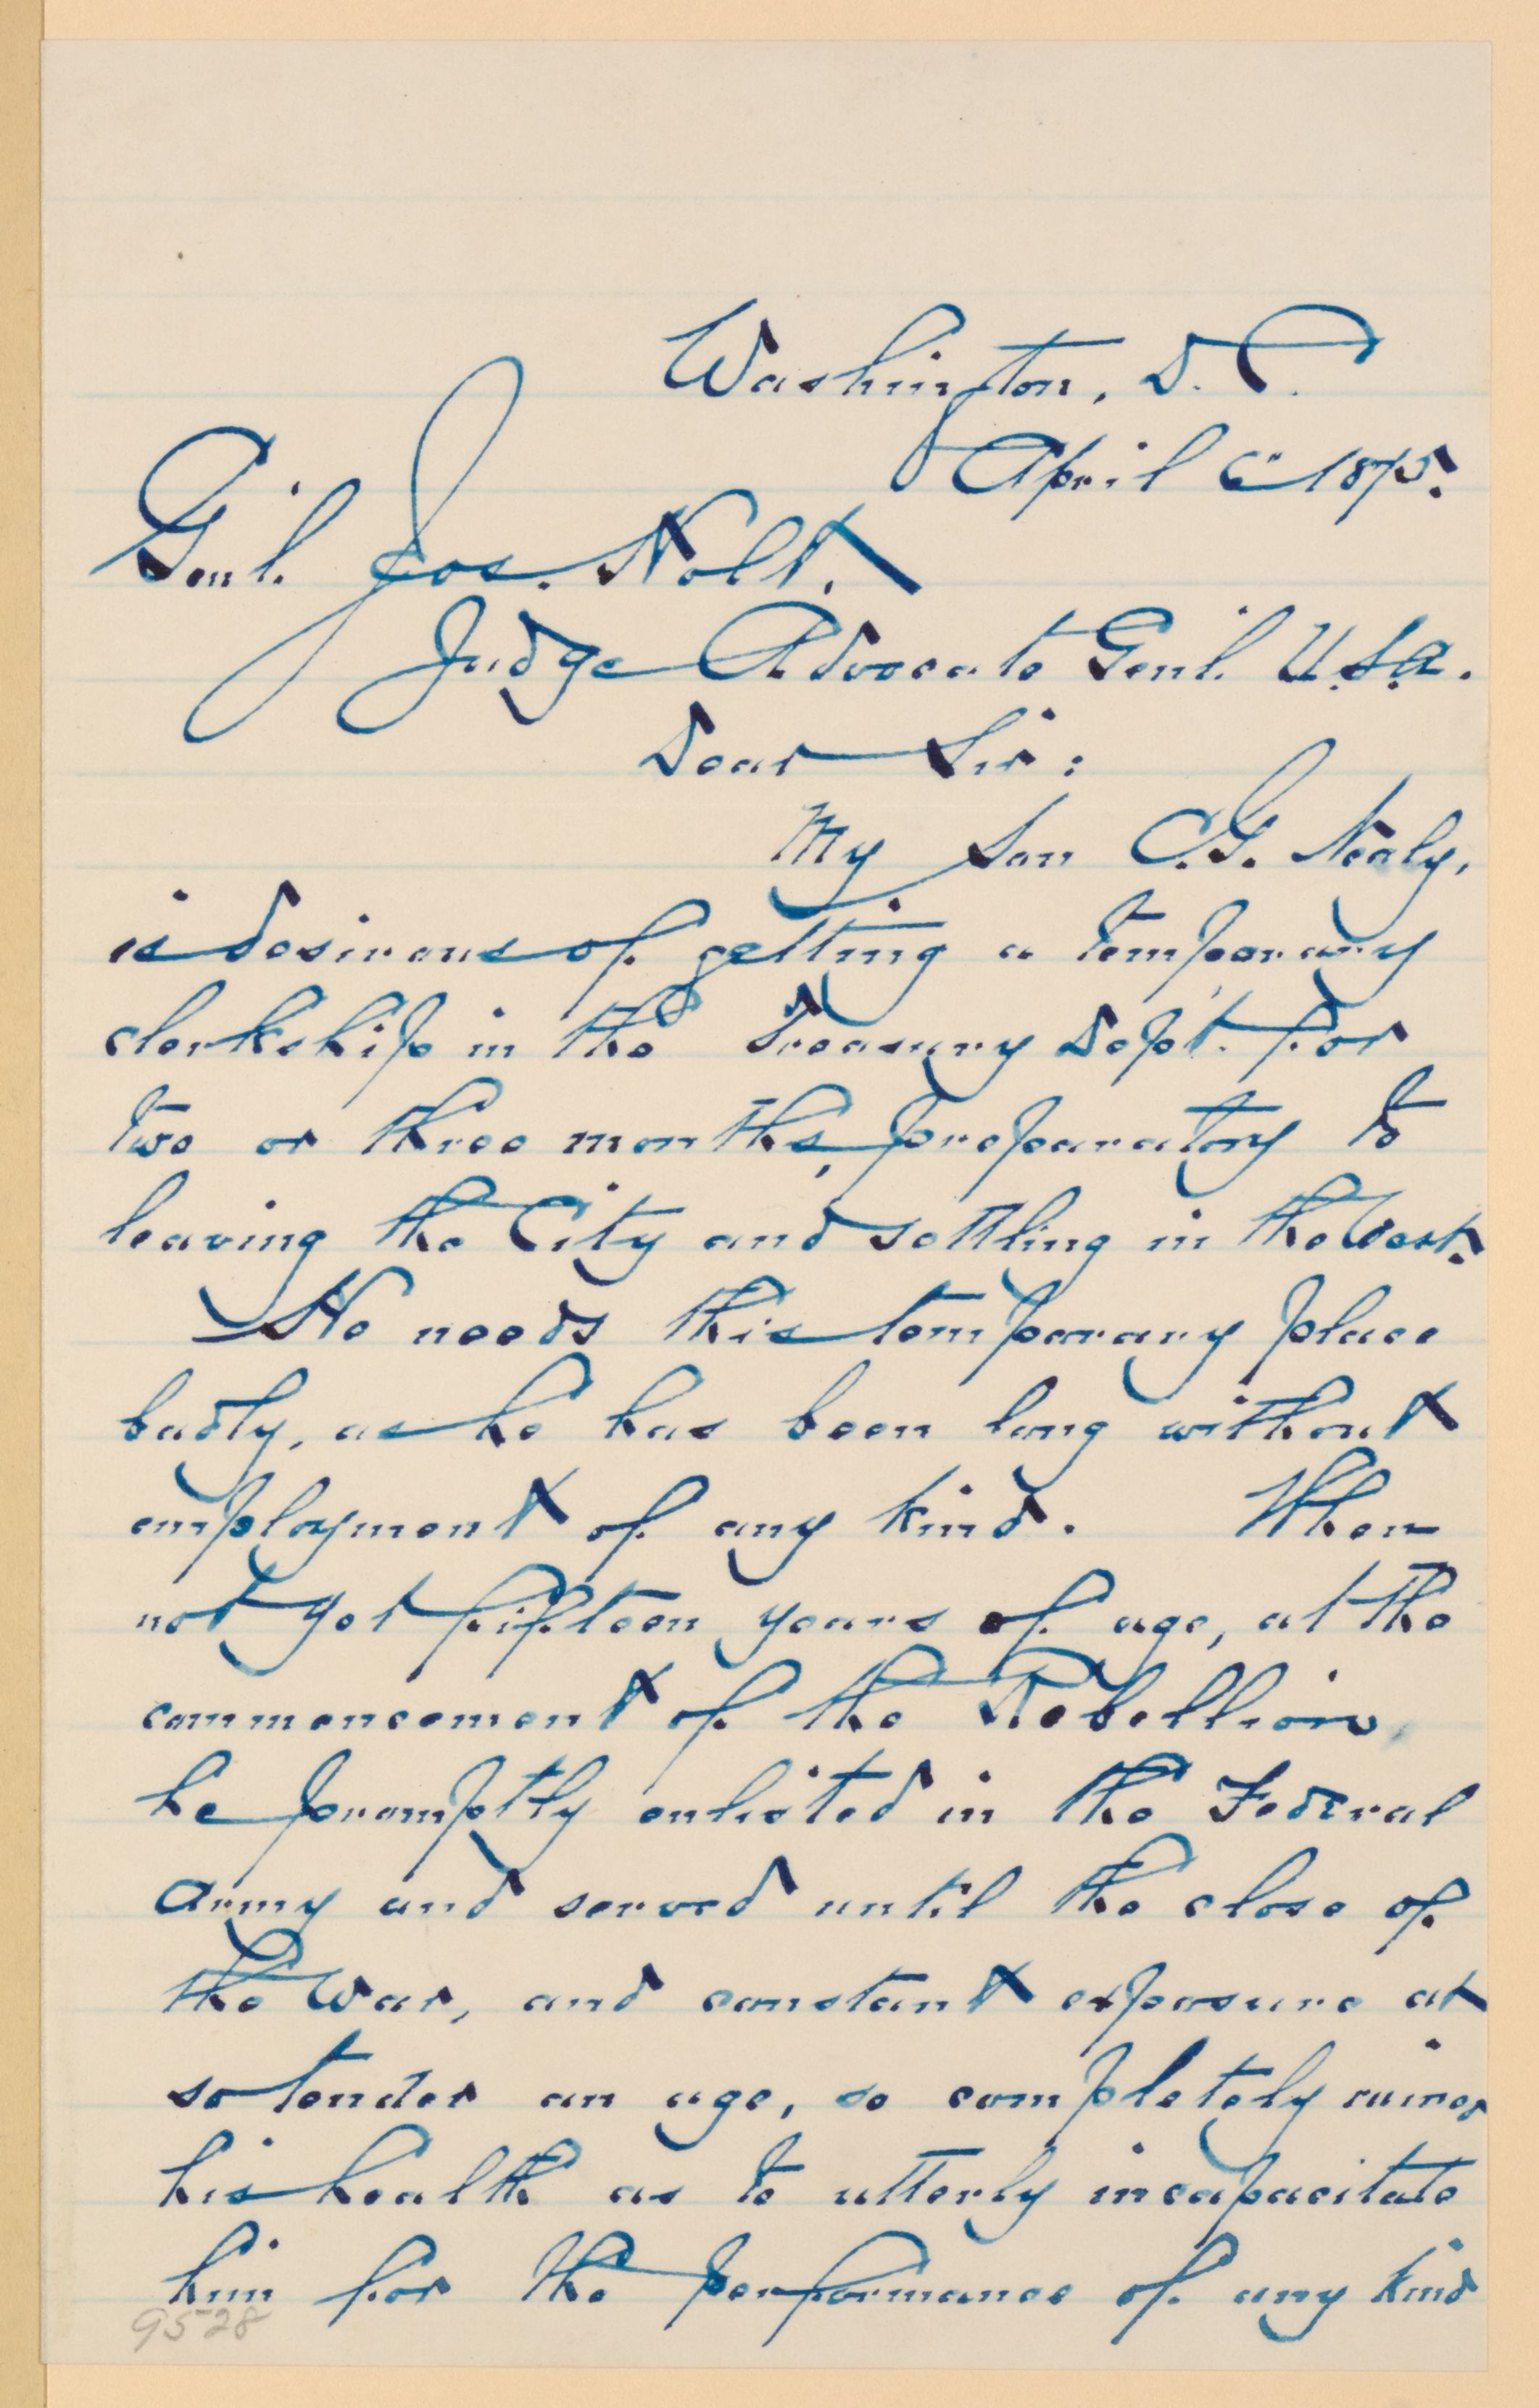 Washington, D.C.
April 6" 1875.
Genl. Jos. Holt.
Judge Advocate Genl. U.S.A.
Dear Sir:
My Son C.G. Nealy,
is desirous of getting a temporary
clerkship in the Treasury Dep't. for
two or three months, preparatory to
leaving the City and settling in the West.
He needs this temporary place
badly, as he has been long without
employment of any kind. When
not yet fifteen years of age, at the
commencement of the Rebellion,
he promptly enlisted in the Federal
Army and served until the close of
the War, and constant exposure at
so tender an age, so completely ruined
his health as to utterly incapacitate
him for the performance of any kind
9528